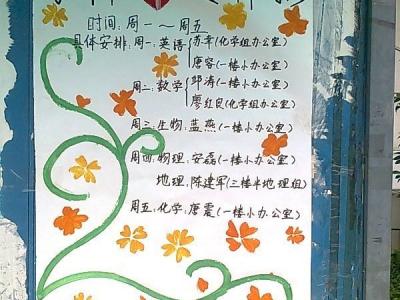 时间：周一～周五
具体安排：周一：英语 苏幸(化学组办公室)
唐容(一楼小办公室)
周二：数学 邹涛(一楼小办公室)
廖红良(化学组办公室)
周三：生物：蓝燕(一楼小办公室)
周四：物理：安磊(一楼小办公室)
地理：陈建军(三楼半地理组)
周五：化学：唐震(一楼小办公室)